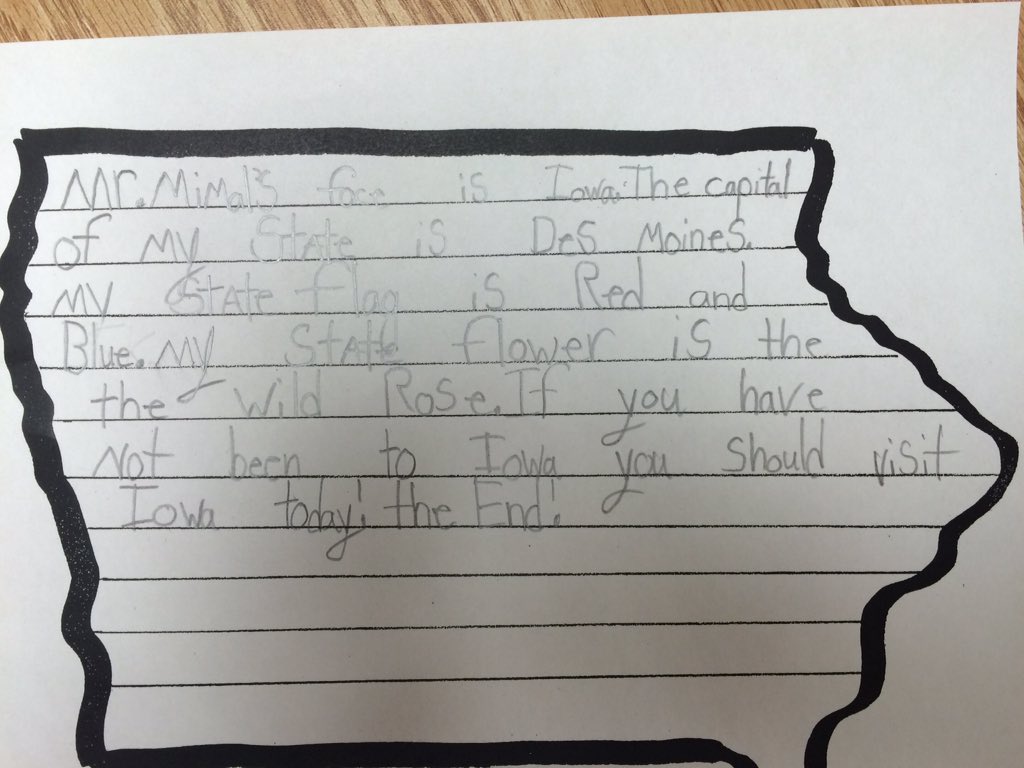 Mr. Mimal's face is Iowa. The capital
of my State is Des Moines.
my State flag is Red and
Blue. my State flower is the
the Wild Rose. If you have
not been to Iowa you should visit
Iowa today! the End!